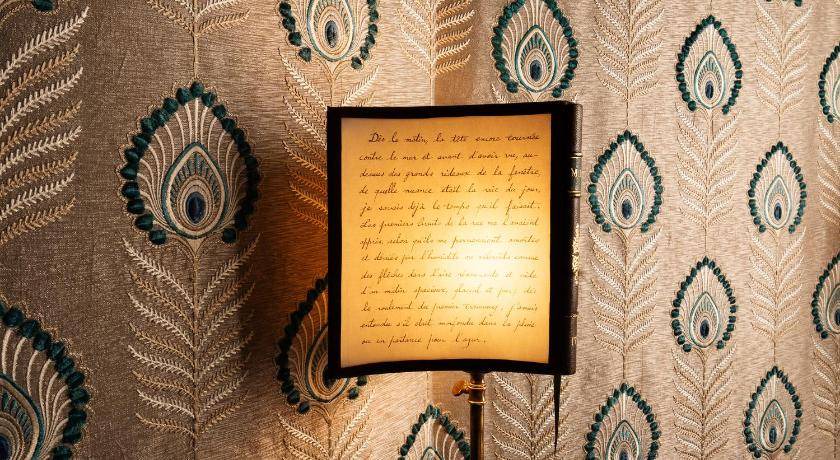 Dès le matin, la tête encore tournée
contre le mur et avant d'avoir vu, au-
dessus des grands rideaux de la fenêtre,
de quelle nuance était la raie du jour,
je savais déjà le temps qu'il faisait.
Les premiers bruits de la rue me l'avaient
appris, selon qu'ils me parvenaient amortis
et déviés par l'humidité ou vibrants comme
des flèches dans l'aire résonnante et vide
d'un matin spacieux, glacial et pur; dès
le roulement du premier tramway, j'avais
entendu s'il était morfondu dans la pluie
ou en partance pour l'azur.